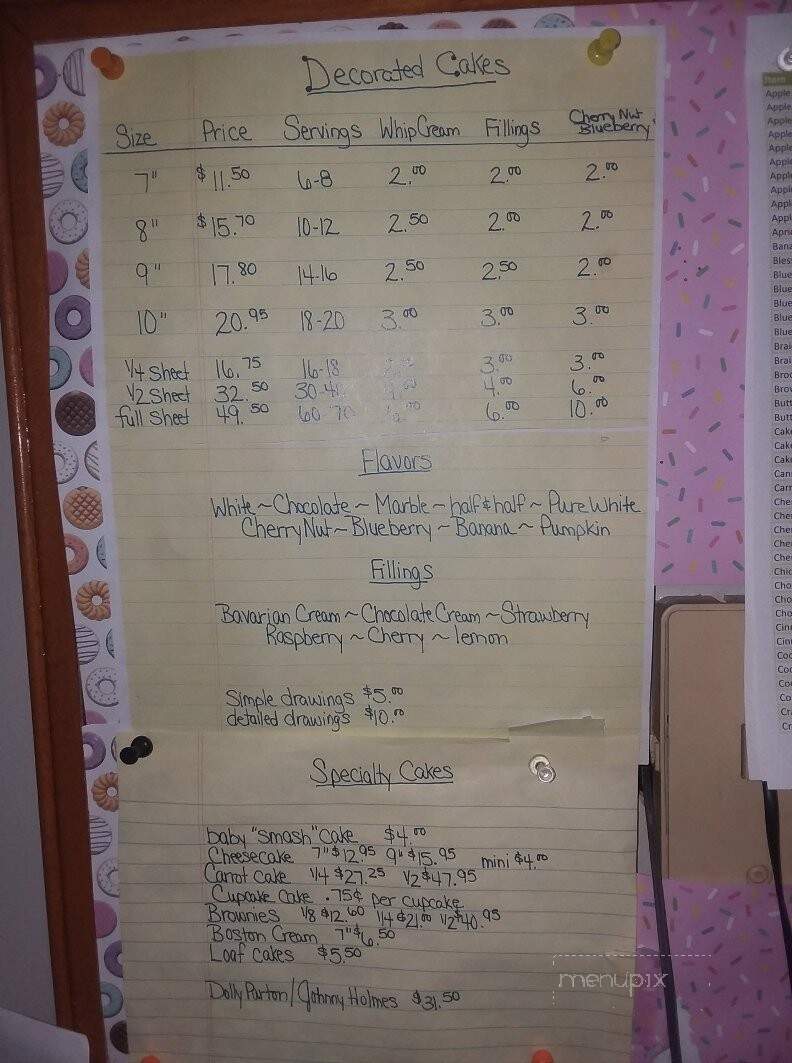 Decorated Cakes
Size Price Servings Whip Cream Fillings Cherry Nut Blueberry
7" $11.50 6-8 2.00 2.00 2.00
8" $15.70 10-12 2.50 2.00 2.00
9" 17.80 14-16 2.50 2.50 2.00
10" 20.95 18-20 3.00 3.00 3.00
1/4 Sheet 16.75 16-18 3.00 3.00
1/2 Sheet 32.50 4.00 6.00
full Sheet 49.50 60 70 6.00 10.00
Flavors
White ~ Chocolate ~ Marble ~ half & half ~ Pure White
Cherry Nut ~ Blueberry ~ Banana ~ Pumpkin
Fillings
Bavarian Cream ~ Chocolate Cream ~ Strawberry
Raspberry ~ Cherry ~ lemon
Simple drawings $5.00
detailed drawings $10.00
Specialty Cakes
baby "Smash" Cake $4.00
Cheesecake 7" $12.95 9" $15.95 mini $4.00
Carrot Cake 1/4 $27.25 1/2 $47.95
Cupcake Cake .75¢ per cupcake
Brownies 1/8 $12.60 1/4 $21.00 1/2 $40.95
Boston Cream 7" $6.50
Loaf Cakes $5.50
Dolly Parton/Johnny Holmes $31.50
menupix
Apple
Apple
Apple
Apple
Apple
Apple